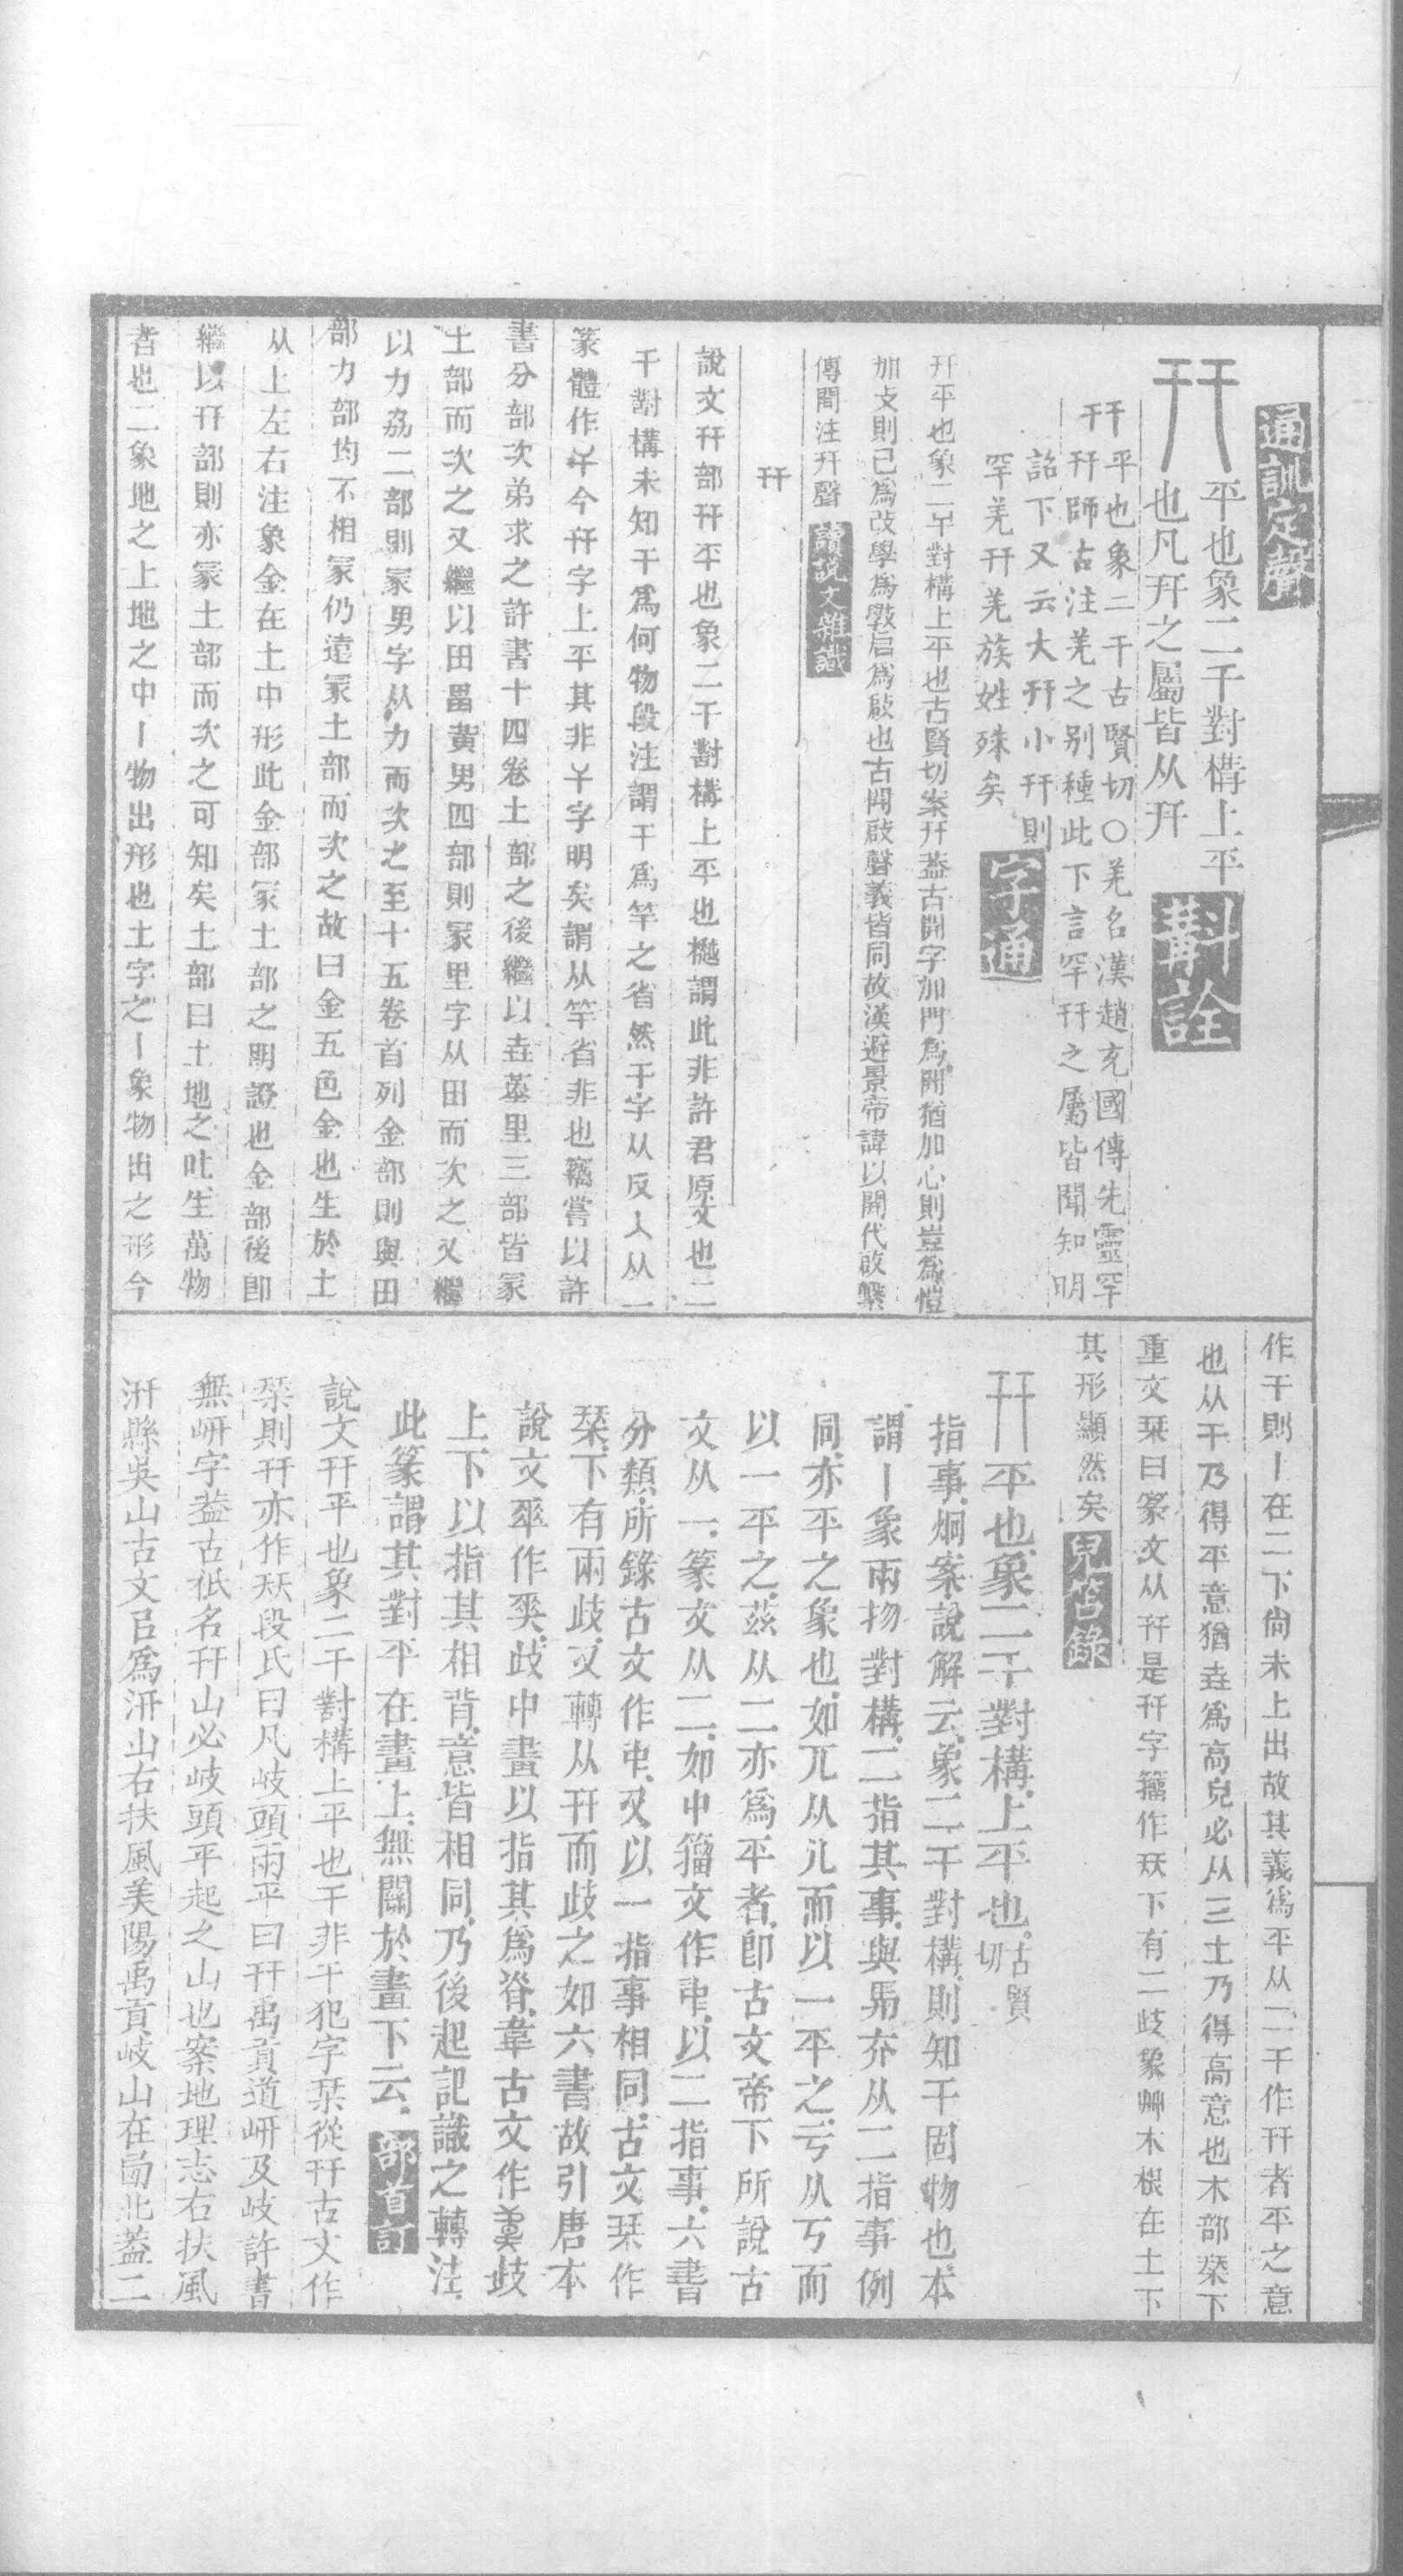 通訓定聲
平也象二干對構上平
也凡幵之屬皆从幵
斠詮
幵平也象二干古賢切〇羌名漢趙充國傳先靈罕
幵幵師古注羌之别種此下言罕幵之屬皆聞知明
詔下又云大幵小幵則
罕羌幵羌族姓殊矣
字通
幵平也象二干對構上平也古賢切案幵葢古開字加門爲開猶加心則豈爲愷
加攴則已爲改學爲斆启爲啟也古開啟聲義皆同故漢避景帝諱以開代啟繫
傳閒注幵聲
讀說文雜識
幵
說文幵部幵平也象二干對構上平也樾謂此非許君原文也二
干對構未知干爲何物段注謂干爲竿之省然干字从反入从一
篆體作𢆉今幵字上平其非𢆉字明矣謂从竿省非也竊嘗以許
書分部次弟求之許書十四卷土部之後繼以垚堇里三部皆冡
土部而次之又繼以田畕黃男四部則冡里字从田而次之又繼
以力劦二部則冡男字从力而次之至十五卷首列金部則與田
部力部均不相冡仍遠冡土部而次之故曰金五色金也生於土
从土左右注象金在土中形此金部冡土部之明證也金部後卽
繼以幵部則亦冡土部而次之可知矣土部曰土地之吐生萬物
者也二象地之上地之中丨物出形也土字之丨象物出之形今
作干則丨在二下尙未上出故其義爲平从二干作幵者平之意
也从干乃得平意猶垚爲高皃必从三土乃得高意也木部栞下
重文栞曰篆文从幵是幵字籀作㺵下有二歧象艸木根在土下
其形顯然矣
兒笘錄
平也象二干對構上平也古賢切
指事炯案說解云象二干對構則知干固物也本
謂丨象兩物對構二指其事與馬夰从二指事例
同亦平之象也如兀从儿而以一平之亏从丂而
以一平之茲从二亦爲平者卽古文帝下所說古
文从一篆文从二如中籀文作𠁩以二指事六書
分類所錄古文作𠁧又以一指事相同古文栞作
栞下有兩歧又轉从幵而歧之如六書故引唐本
說文𠦬作𠌶歧中畫以指其爲脊韋古文作𡙝歧
上下以指其相背意皆相同乃後起記識之轉注
此篆謂其對平在畫上無關於畫下云
部首訂
說文幵平也象二干對構上平也干非干犯字栞從幵古文作
栞則幵亦作㺵段氏曰凡岐頭兩平曰幵禹貢道岍及岐許書
無岍字葢古祇名幵山必岐頭平起之山也案地理志右扶風
汧縣吳山古文㠯爲汧山右扶風美陽禹貢岐山在西北葢二